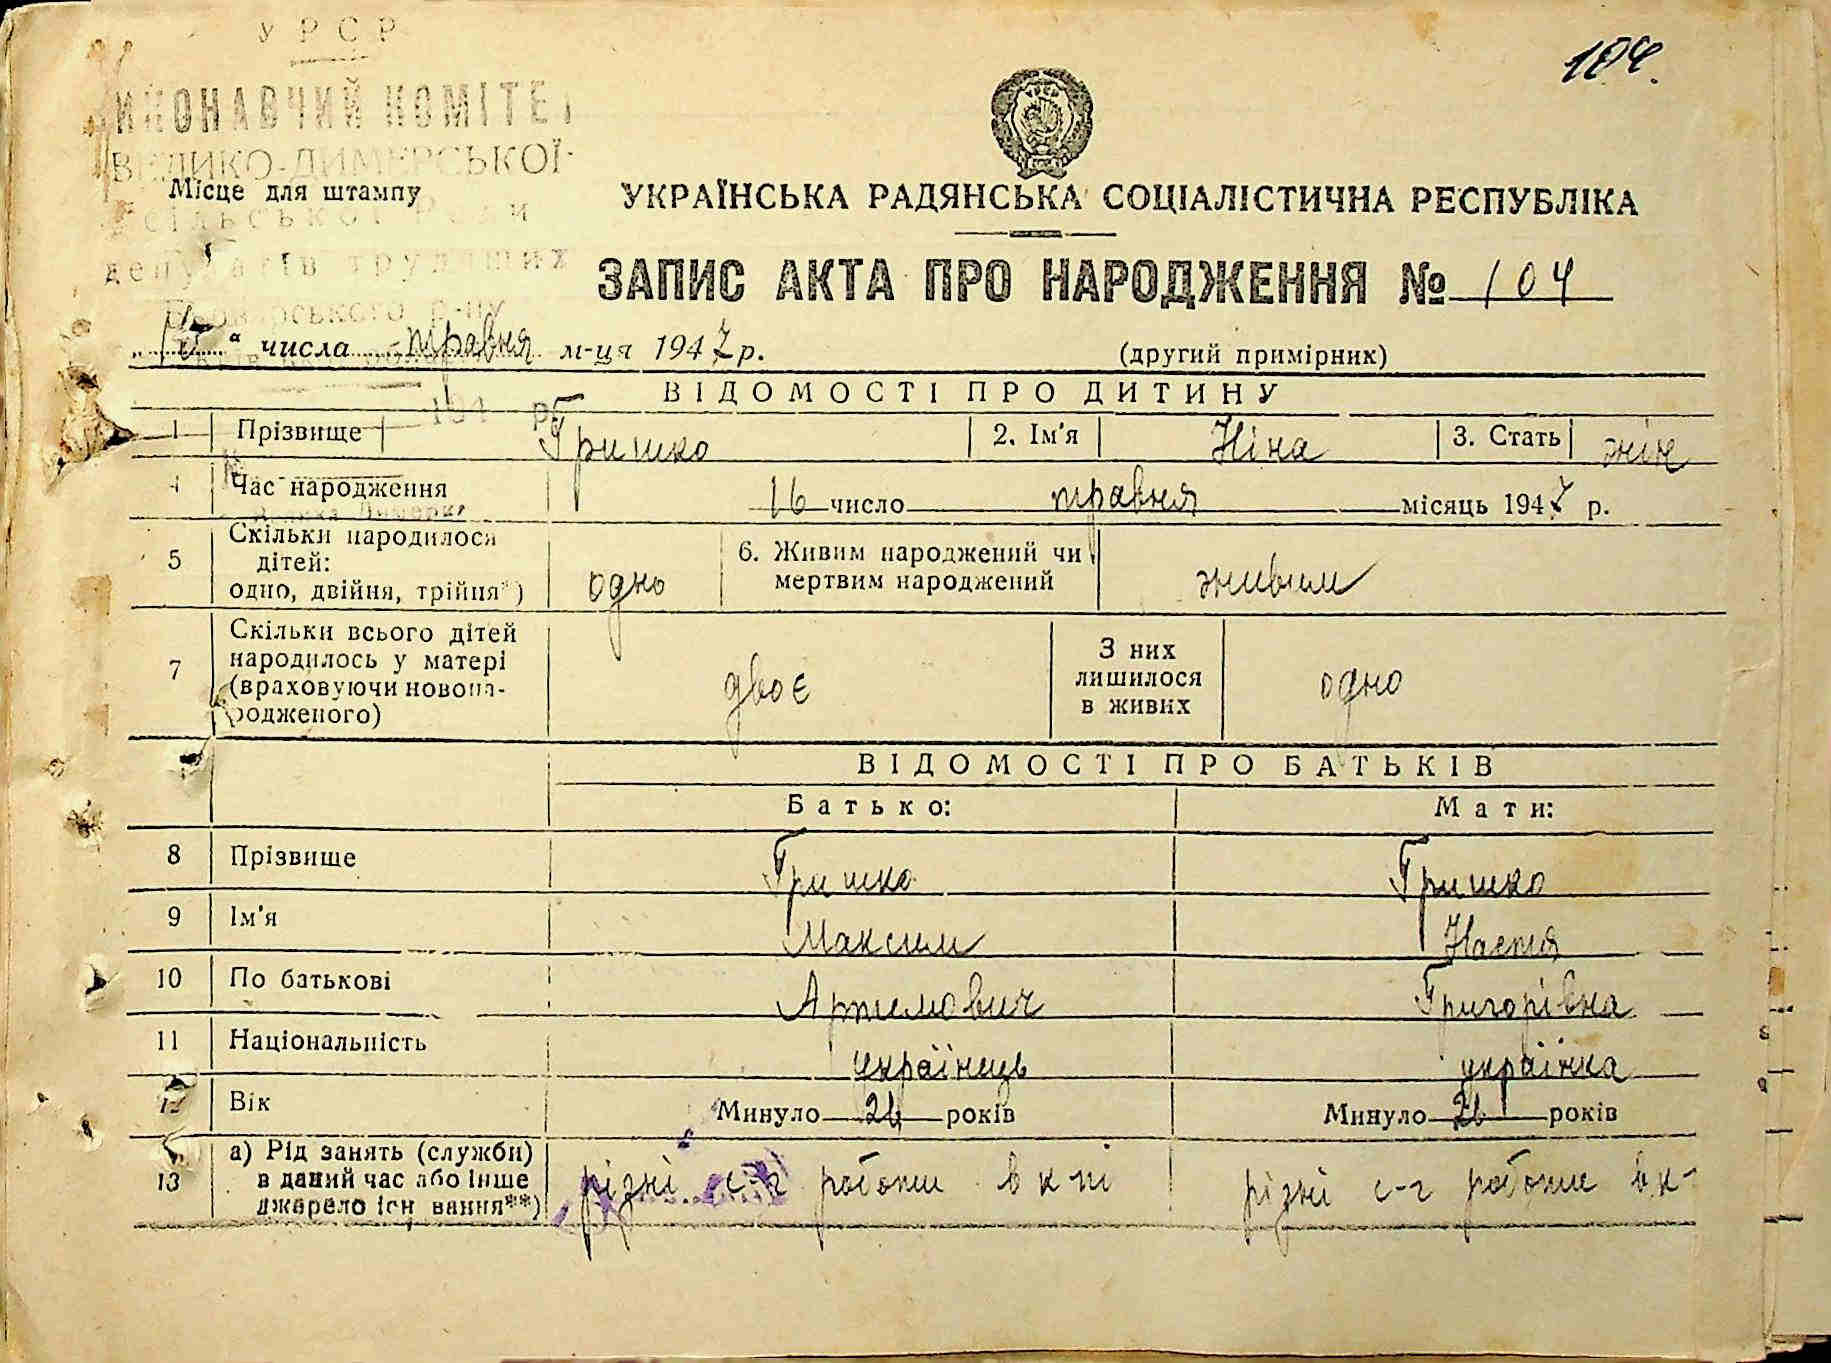 УРСР
104.
ИКОНАВЧИЙ КОМІТЕ
ВЕЛИКО-ДИМЕРСЬКОЇ
Місце для штампу
УКРАЇНСЬКА РАДЯНСЬКА СОЦІАЛІСТИЧНА РЕСПУБЛІКА
сільської Ради
депутатів трудящих
ЗАПИС АКТА ПРО НАРОДЖЕННЯ № 104
Броварського р-ну
числа травня м-ця 1947 р. (другий примірник)
ВІДОМОСТІ ПРО ДИТИНУ
1 Прізвище Гришко 2. Ім'я Ніна 3. Стать жін
4 Час народження 16 число травня місяць 1947 р.
5 Скільки народилося дітей: одно, двійня, трійня*) одно 6. Живим народжений чи мертвим народжений живим
7 Скільки всього дітей народилось у матері (враховуючи новонародженого) двоє З них лишилося в живих одно
ВІДОМОСТІ ПРО БАТЬКІВ
Батько: Мати:
8 Прізвище Гришко Гришко
9 Ім'я Максим Настя
10 По батькові Артемович Григорівна
11 Національність українець українка
12 Вік Минуло 26 років Минуло 26 років
13 а) Рід занять (служби) в даний час або інше джерело існ вання**) різні с-г роботи в к-ті різні с-г роботи в к-